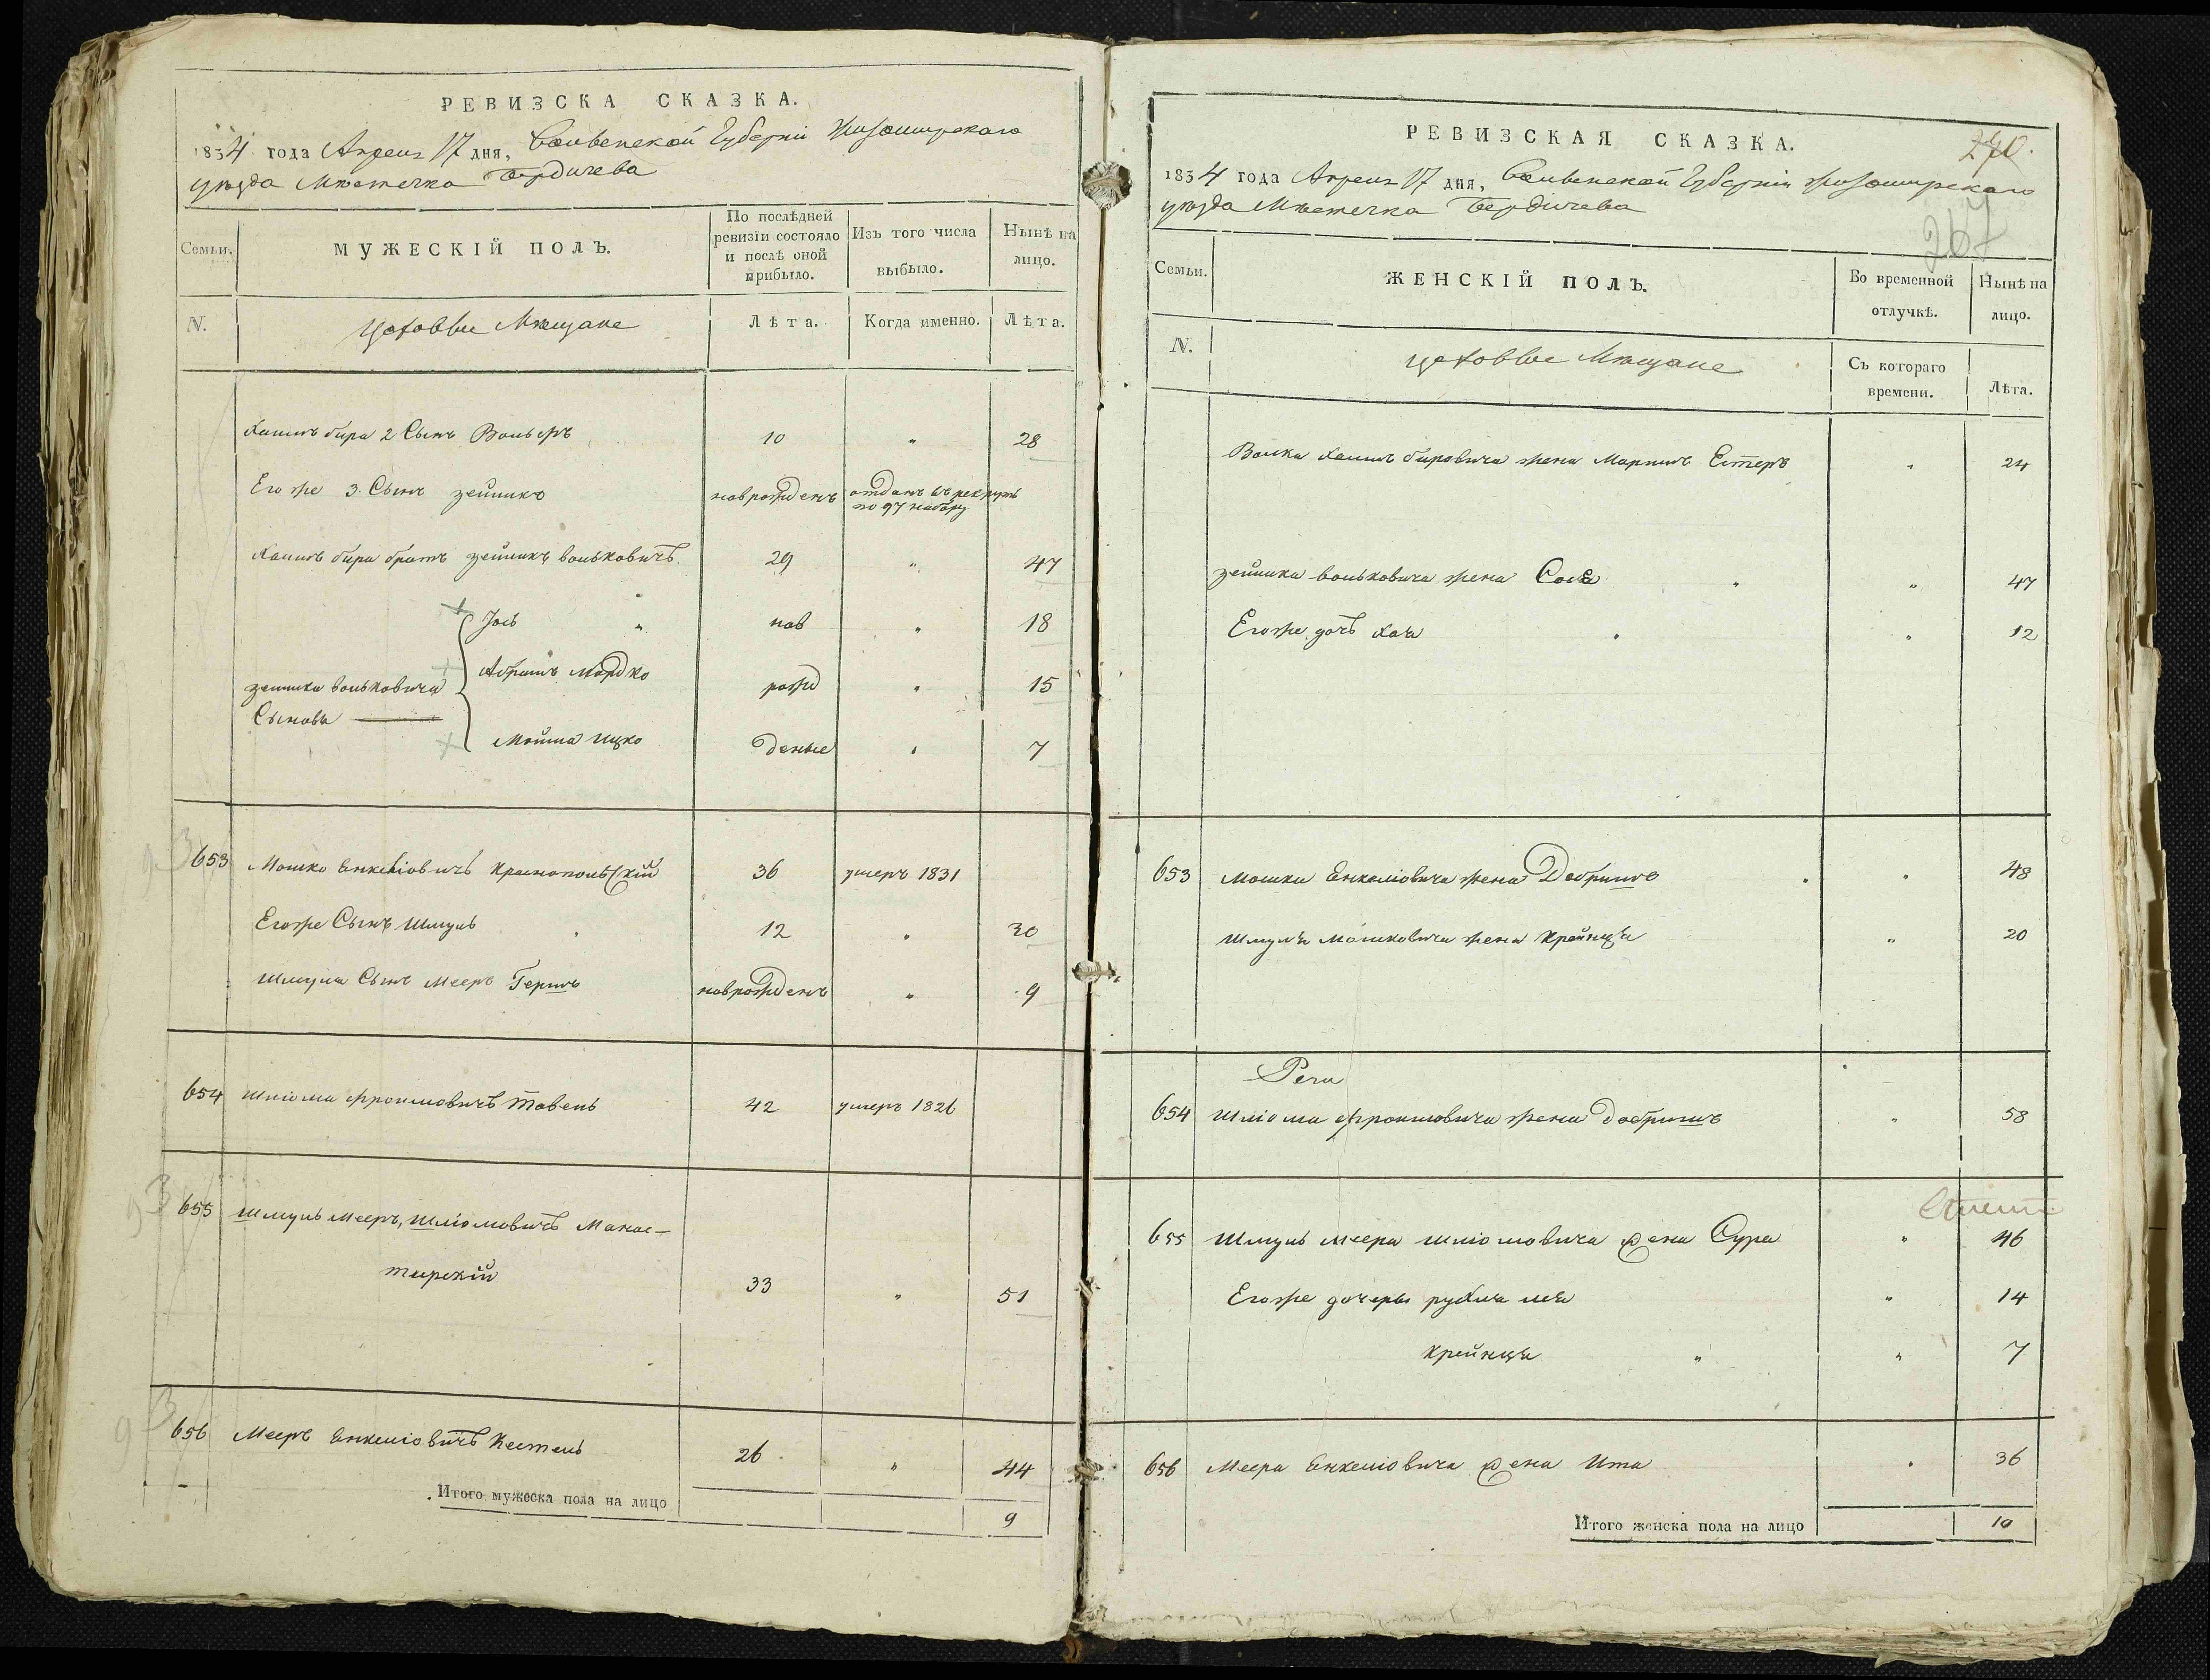 РЕВИЗСКА СКАЗКА.
1834 года Апреля 17 дня, Волынской Губерніи Житомирскаго
уѣзда Мѣстечка Бердичева
Семьи.
МУЖЕСКІЙ ПОЛЪ.
По послѣдней ревизіи состояло и послѣ оной прибыло.
Изъ того числа выбыло.
Нынѣ на лицо.
N.
Цеховые Мѣщане
Лѣта.
Когда именно.
Лѣта.
2 Сынъ Вольфъ 10 " 28
Его же 3 Сынъ зейликъ новрожденъ отданъ въ рекруты
по 97 набору
братъ зейликъ вольковичъ 29 " 47
Іось " нов " 18
Абрамъ Мордко рожд " 15
зейлика вольковича
Сыновья
Мойша Ицко деные " 7
653 Мошко Енкеліовичъ Краснопольскій 36 умеръ 1831
Егоже Сынъ Шмуль " 12 " 30
Шмуля Сынъ Мееръ Гершъ новрожденъ " 9
654 Шліома Фроимовичъ 42 умеръ 1826
655 Шмуль Мееръ, Шліомовичъ Монас-
тырскій 33 " 51
656 Мееръ Енкеліовичъ Кестель 26 " 44
Итого мужеска пола на лицо 9
РЕВИЗСКАЯ СКАЗКА.
270.
267
1834 года Апреля 17 дня, Волынской Губерніи Житомирскаго
уѣзда Мѣстечка Бердичева
Семьи.
ЖЕНСКІЙ ПОЛЪ.
Во временной отлучкѣ.
Нынѣ на лицо.
N.
цеховые Мѣщане
Съ котораго времени.
Лѣта.
Волка жена Естеръ " 24
зейлика вольковича жена Сося " " 47
Егоже дочь Хая " " 12
653 Мошки Енкеліовича жена Добришъ " " 48
Шмуля Мошковича жена Крейнця " 20
654 Шліома Фроимовича жена Добришъ " 58
655 Шмуль Меера Шліомовича жена Сура " 46
Егоже дочеры рухля лея " 14
Крейнця " " 7
656 Меера Енкеліовича жена Ита " 36
Итого женска пола на лицо 10